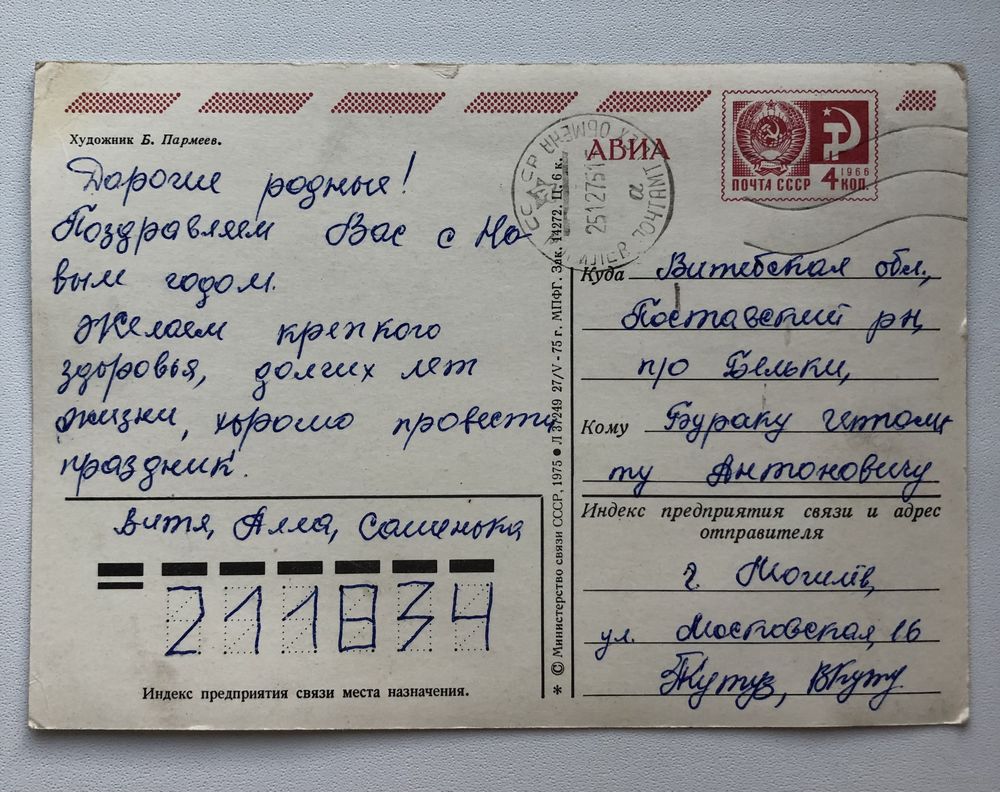 Художник Б. Пармеев.
Дорогие родные!
Поздравляем Вас с Но-
вым годом.
Желаем крепкого
здоровья, долгих лет
жизни, хорошо провести
праздник.
Витя, Алла, Сашенька
211834
Индекс предприятия связи места назначения.
* © Министерство связи СССР, 1975 ● Л 37249 27/V - 75 г. МПФГ. Зак. 14272. Ц. 6 к.
АВИА
ПОЧТА СССР
1966
4 КОП.
СССР
МОГИЛЕВ ПОЧТАМТ
251275
Куда Витебская обл.,
Поставский рн,
п/о Бельки,
Кому Бураку
ту Антоновичу
Индекс предприятия связи и адрес
отправителя
г. Могилёв,
ул. Московская, 16